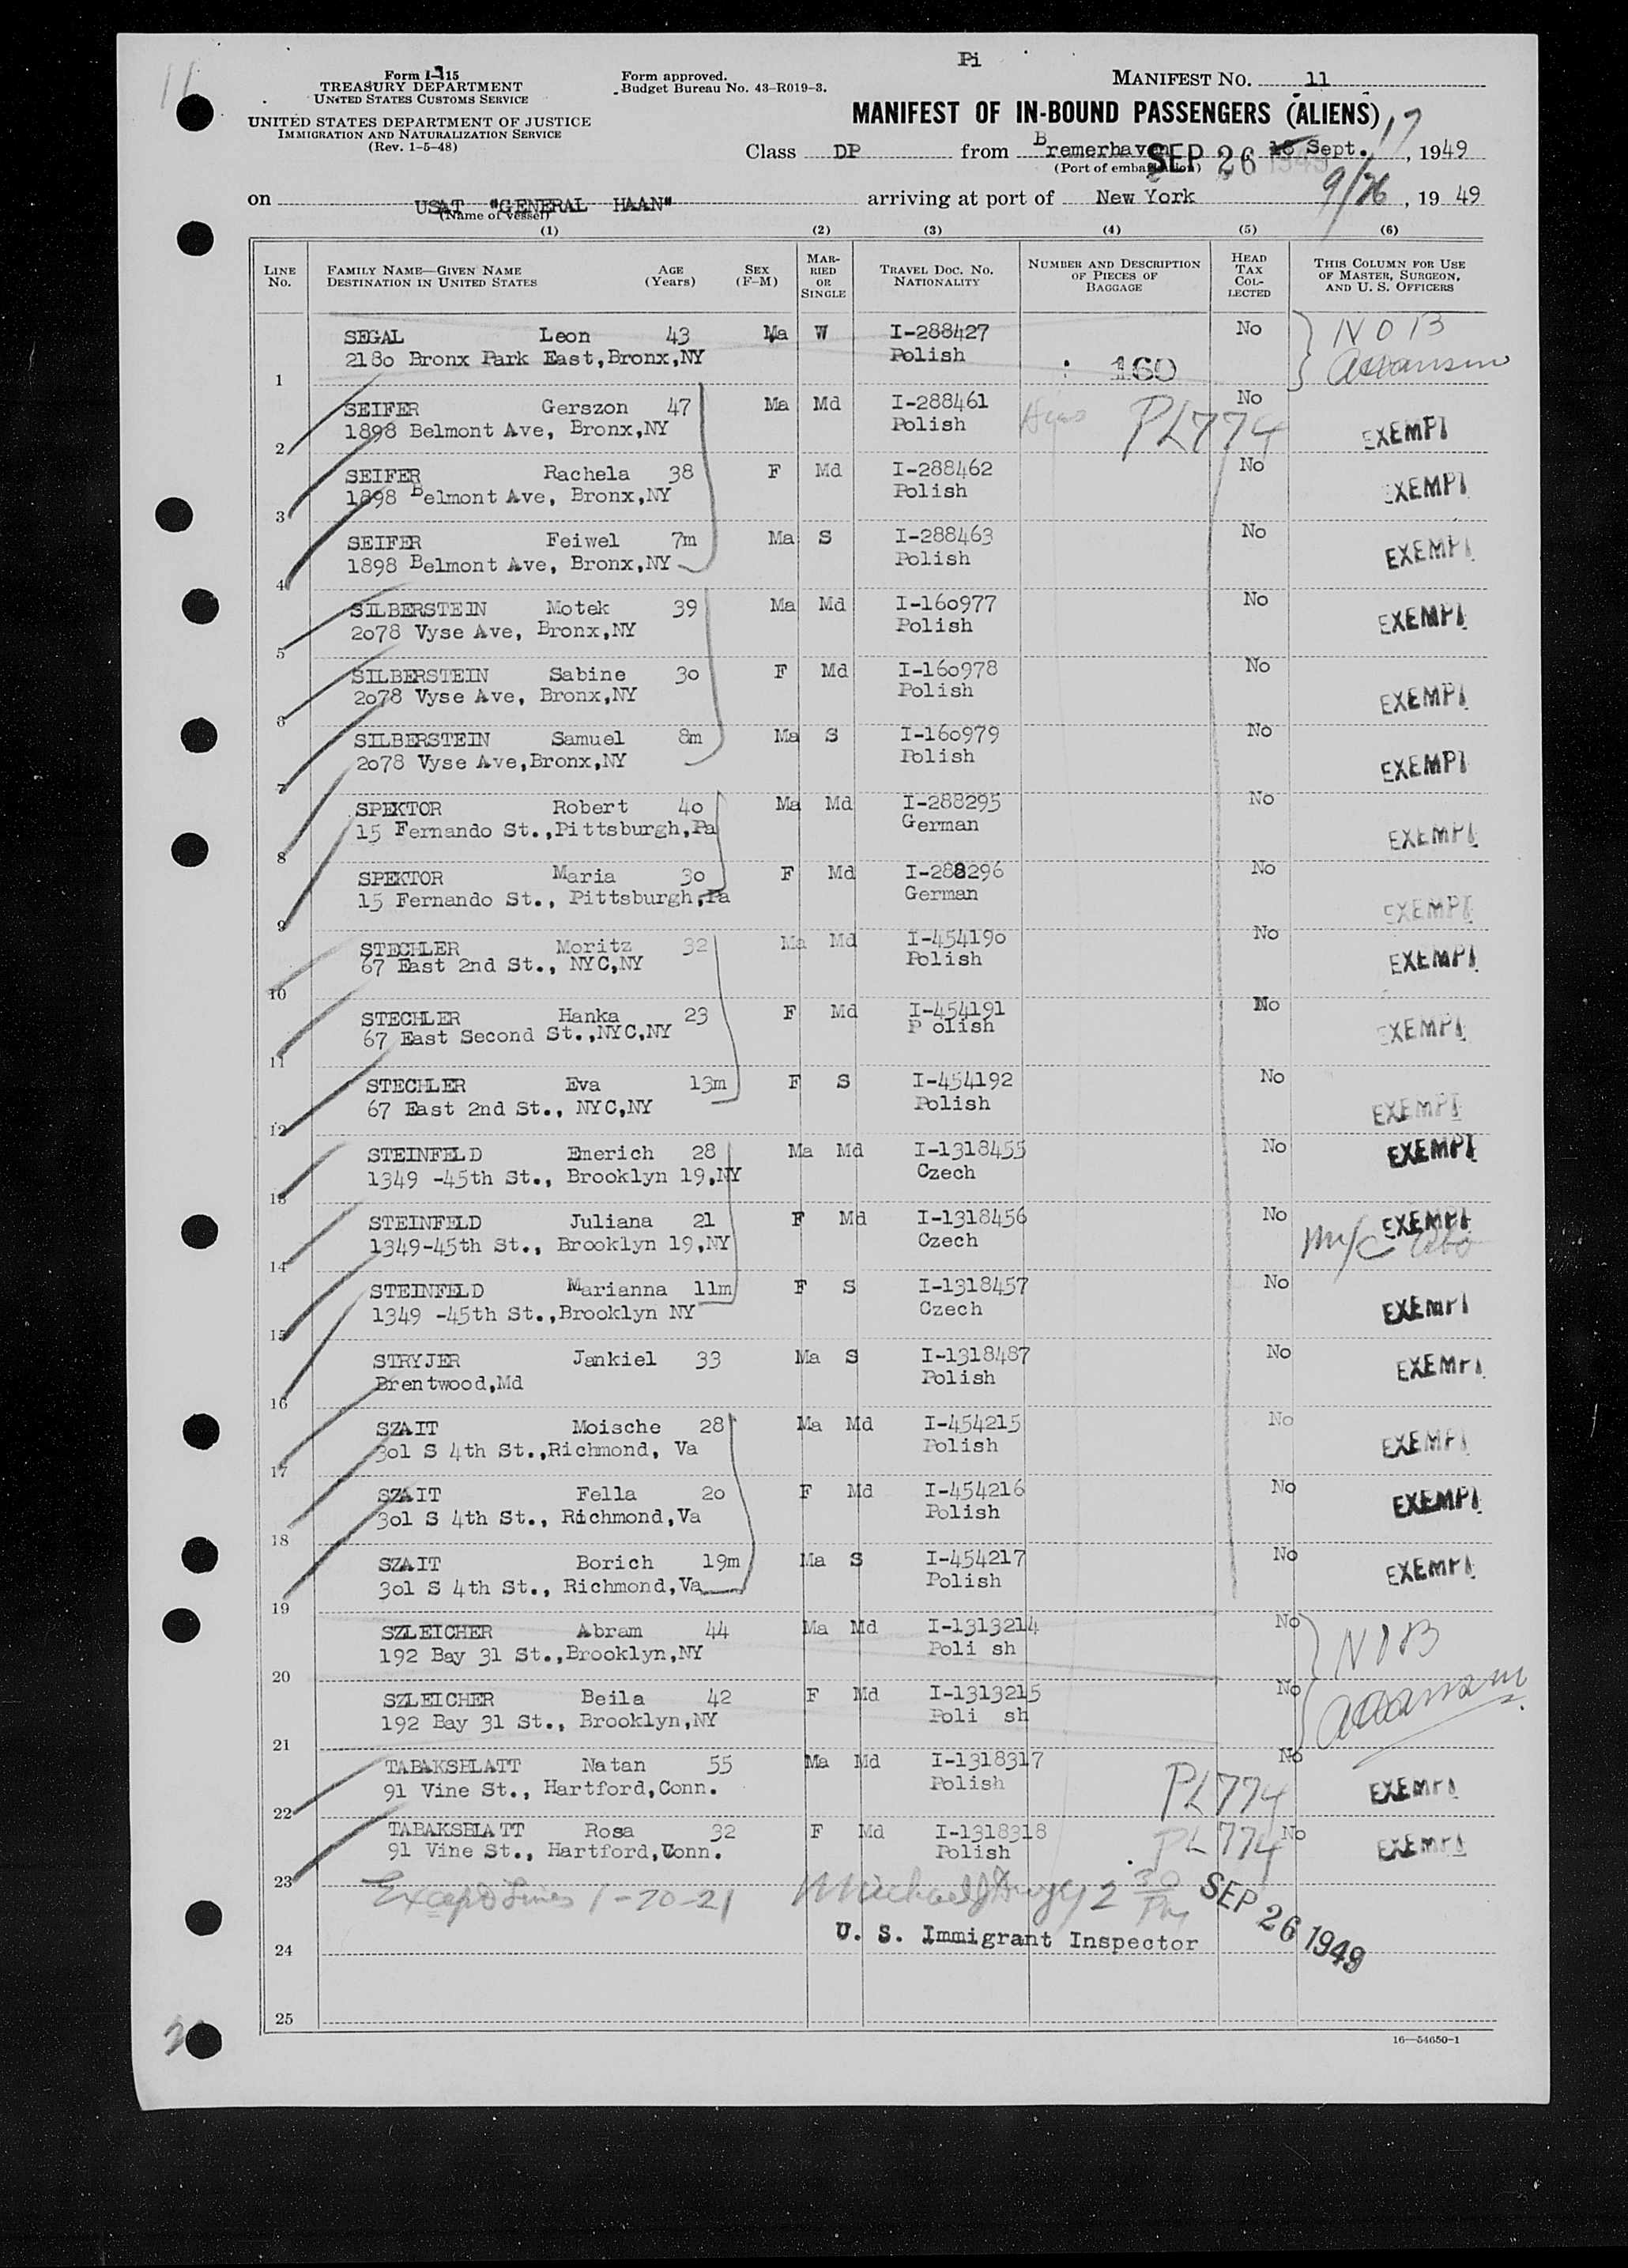 11
Pi
Form I-415
TREASURY DEPARTMENT
UNITED STATES CUSTOMS SERVICE
UNITED STATES DEPARTMENT OF JUSTICE
IMMIGRATION AND NATURALIZATION SERVICE
(Rev. 1-5-48)
Form approved.
Budget Bureau No. 43-R019-3.
MANIFEST NO. 11
MANIFEST OF IN-BOUND PASSENGERS (ALIENS)
Class DP from Bremerhaven SEP 26 1949 18 Sept. 17, 1949
(Port of embarkation)
on USAT "GENERAL HAAN" arriving at port of New York 9/26, 1949
(Name of vessel)
(1) (2) (3) (4) (5) (6)
LINE NO. FAMILY NAME—GIVEN NAME DESTINATION IN UNITED STATES AGE (Years) SEX (F-M) MARRIED OR SINGLE TRAVEL DOC. NO. NATIONALITY NUMBER AND DESCRIPTION OF PIECES OF BAGGAGE HEAD TAX COLLECTED THIS COLUMN FOR USE OF MASTER, SURGEON, AND U. S. OFFICERS
SEGAL Leon 43 Ma W I-288427 No NOB
1 2180 Bronx Park East,Bronx,NY Polish : 160
SEIFER Gerszon 47 Ma Md I-288461 PL774 No EXEMPT
2 1898 Belmont Ave, Bronx,NY Polish
SEIFER Rachela 38 F Md I-288462 No EXEMPT
3 1898 Belmont Ave, Bronx,NY Polish
SEIFER Feiwel 7m Ma S I-288463 No EXEMPT
4 1898 Belmont Ave, Bronx,NY Polish
SILBERSTEIN Motek 39 Ma Md I-160977 No EXEMPT
5 2078 Vyse Ave, Bronx,NY Polish
SILBERSTEIN Sabine 30 F Md I-160978 No EXEMPT
6 2078 Vyse Ave, Bronx,NY Polish
SILBERSTEIN Samuel 8m Ma S I-160979 No EXEMPT
7 2078 Vyse Ave,Bronx,NY Polish
SPEKTOR Robert 40 Ma Md I-288295 No EXEMPT
8 15 Fernando St.,Pittsburgh,Pa German
SPEKTOR Maria 30 F Md I-288296 No EXEMPT
9 15 Fernando St., Pittsburgh,Pa German
STECHLER Moritz 32 Ma Md I-454190 No EXEMPT
10 67 East 2nd St., NYC,NY Polish
STECHLER Hanka 23 F Md I-454191 No EXEMPT
11 67 East Second St.,NYC,NY P olish
STECHLER Eva 13m F S I-454192 No EXEMPT
12 67 East 2nd St., NYC,NY Polish
STEINFELD Emerich 28 Ma Md I-1318455 No EXEMPT
13 1349 -45th St., Brooklyn 19,NY Czech
STEINFELD Juliana 21 F Md I-1318456 No EXEMPT
14 1349-45th St., Brooklyn 19,NY Czech m/c
STEINFELD Marianna 11m F S I-1318457 No EXEMPT
15 1349 -45th St.,Brooklyn NY Czech
STRYJER Jankiel 33 Ma S I-1318487 No EXEMPT
16 Brentwood,Md Polish
SZAIT Moische 28 Ma Md I-454215 No EXEMPT
17 301 S 4th St.,Richmond, Va Polish
SZAIT Fella 20 F Md I-454216 No EXEMPT
18 301 S 4th St., Richmond,Va Polish
SZAIT Borich 19m Ma S I-454217 No EXEMPT
19 301 S 4th St., Richmond,Va Polish
SZLEICHER Abram 44 Ma Md I-1313214 No NOB
20 192 Bay 31 St.,Brooklyn,NY Poli sh
SZLEICHER Beila 42 F Md I-1313215 No
21 192 Bay 31 St., Brooklyn,NY Poli sh
TABAKSBLATT Natan 55 Ma Md I-1318317 PL774 No EXEMPT
22 91 Vine St., Hartford,Conn. Polish
TABAKSBLATT Rosa 32 F Md I-1318318 PL774 No EXEMPT
23 91 Vine St., Hartford,Conn. Polish
Except Lines 1-20-21 Michael 2 30 Pm SEP 26 1949
24 U. S. Immigrant Inspector
25
16—54650-1